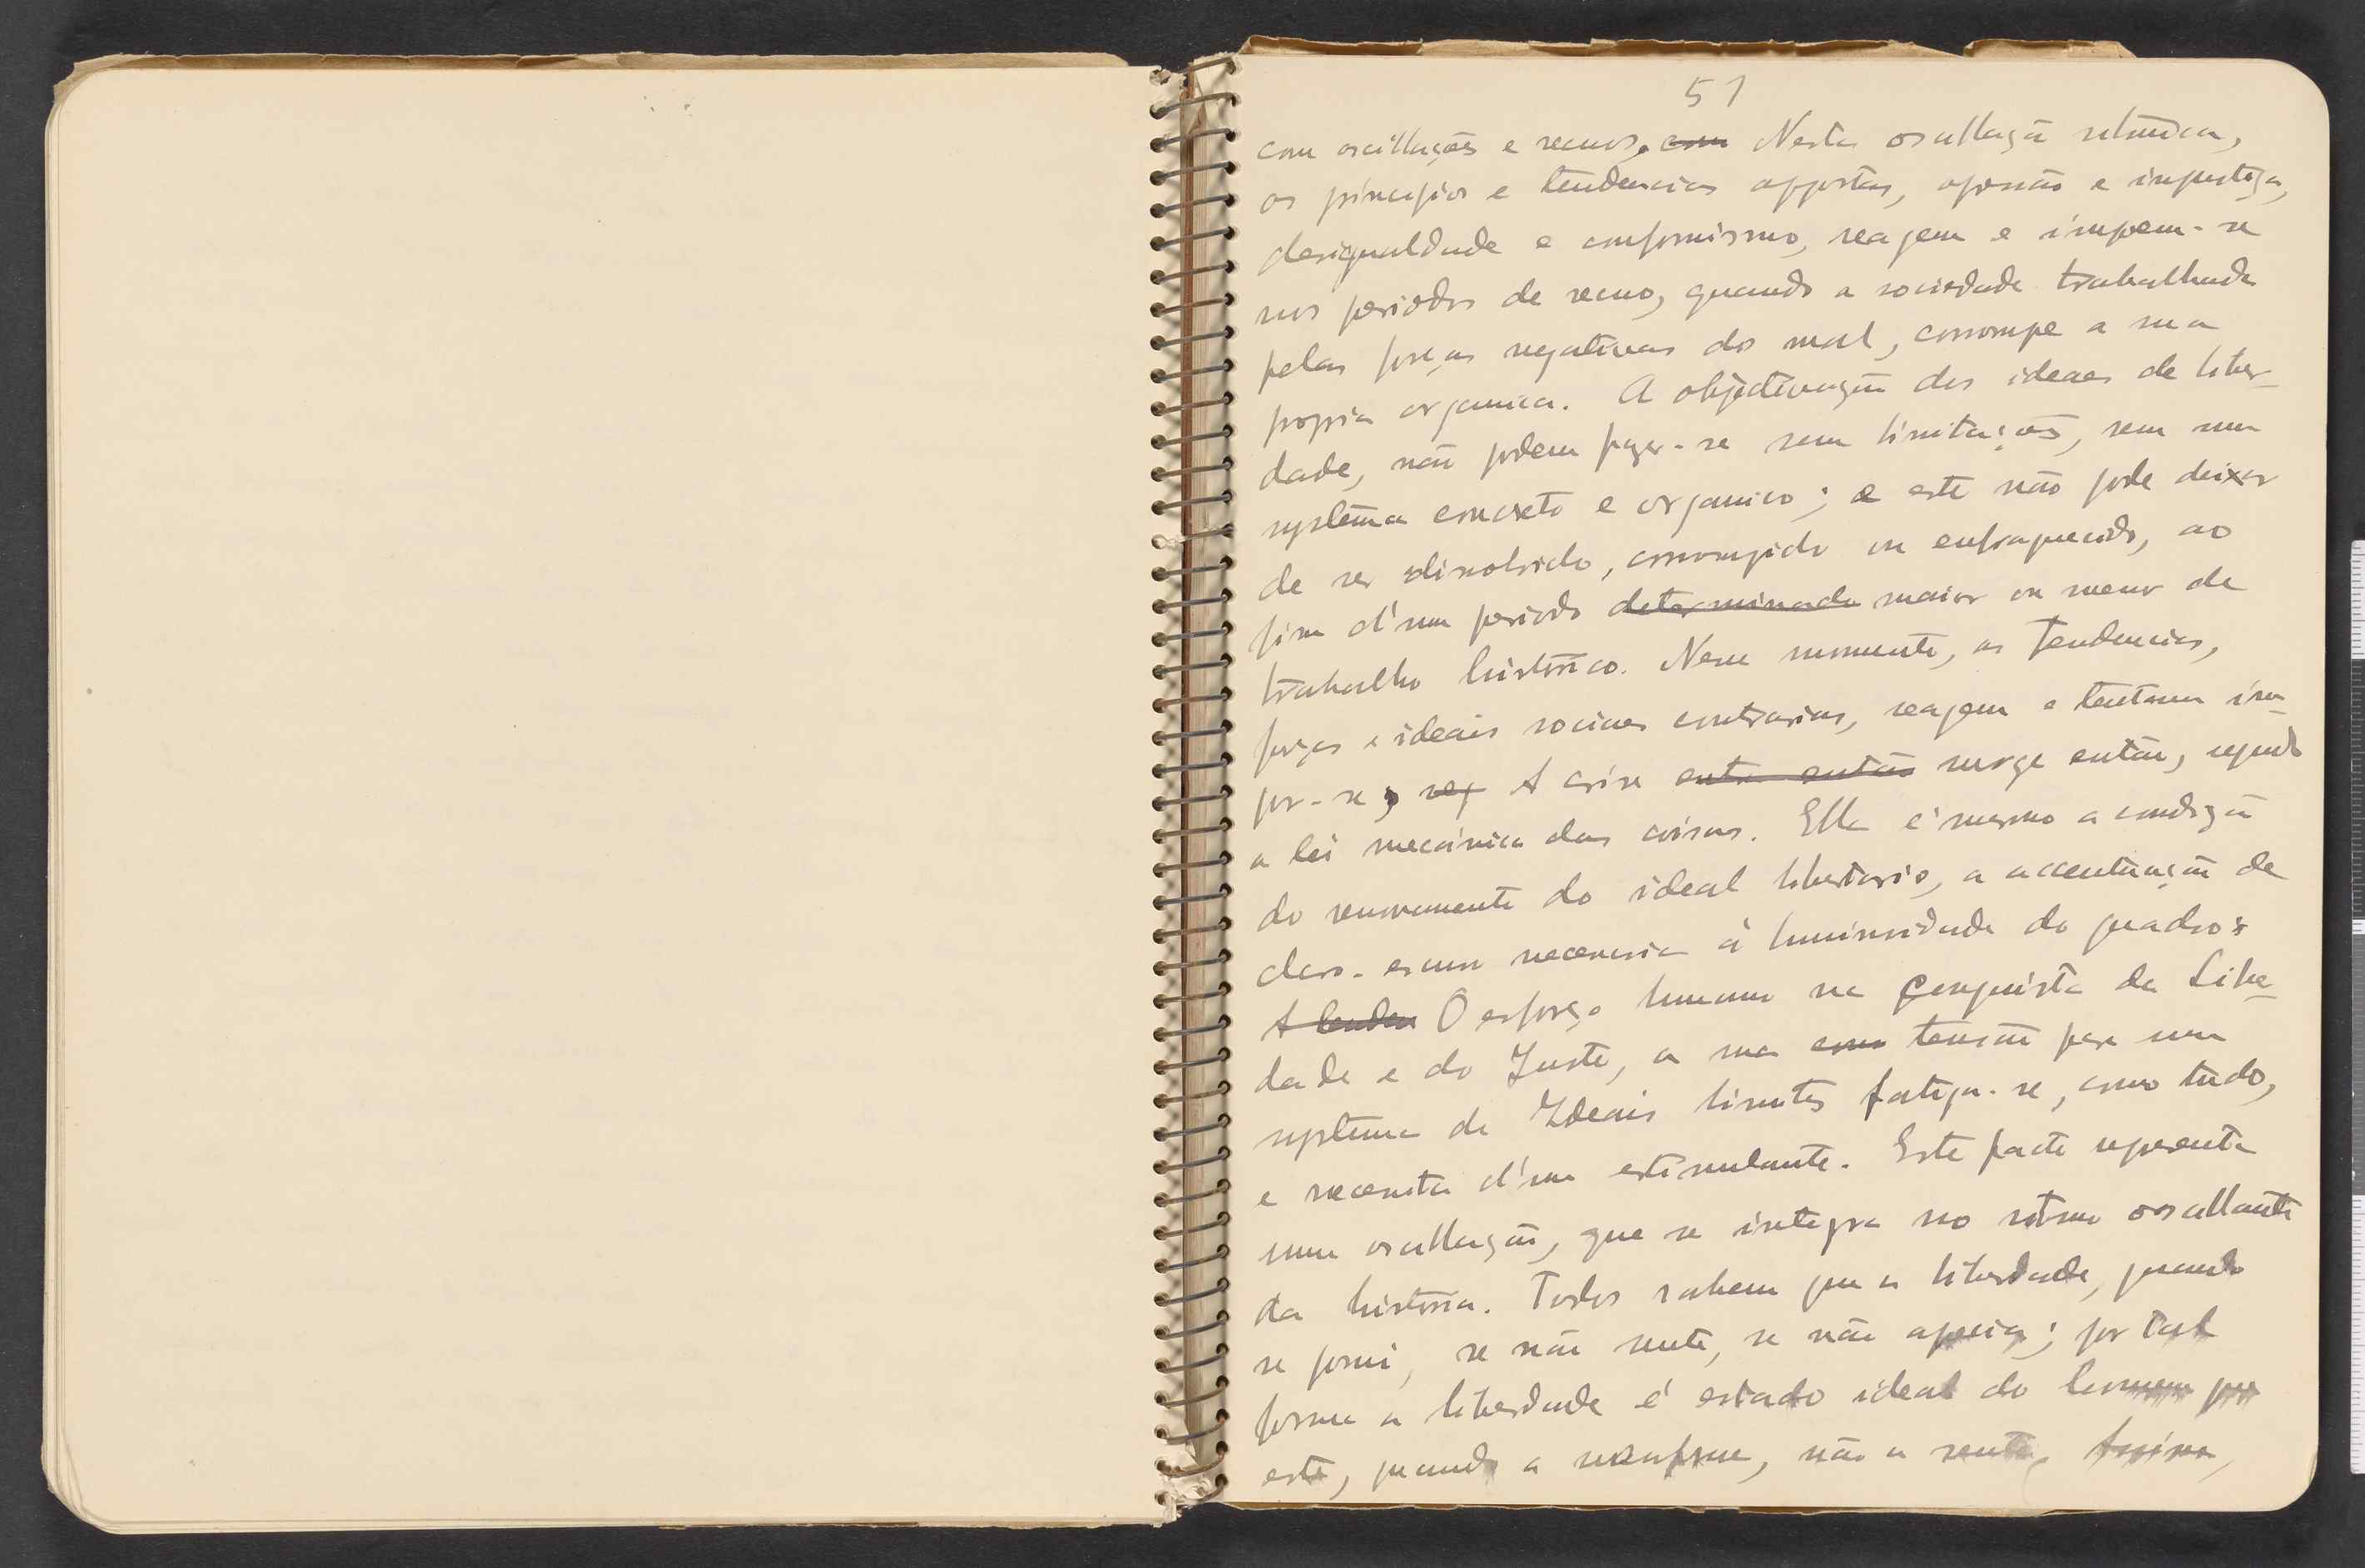 51
com oscillações e recuos. com Nesta oscillação rithmica,
os principios e tendencias oppostas, opressão e injustiça,
desigualdade e conformismo, reagem e impoem-se
nos periodos de recuo, quando a sociedade trabalhada
pelas forças negativas do mal, corrompe a sua
propria organica. A objectivação dos ideaes de liber-
dade, não podem fazer-se sem limitações, sem um
systema concreto e organico; e este não pode deixar
de ser dissolvido, corrompido ou enfraquecido, ao
fim d'um periodo determinado maior ou menor de
trabalho historico. Nesse momento, as tendencias,
forças e ideais sociaes contrarias, reagem e tentam im-
por-se, A crise entra então surge então, segundo
a lei mecânica das coisas. Ella é mesmo a condição
do renovamento do ideal libertario, a accentuação de
claro-escuro necessaria á luminosidade do quadro:
A O esforço humano na conquista da Liber-
dade e do Justo, a sua como tensão para um
systema de Ideais limites fatiga-se, como tudo,
e necessita d'um estimulante. Este facto representa
uma oscillação, que se integra no ritmo oscillante
da historia. Todos sabem que a liberdade, quando
se possui, se não sente, se não aprecia; por tal
forma a liberdade é estado ideal do homem que
este, quando a usufrue, não a sente.